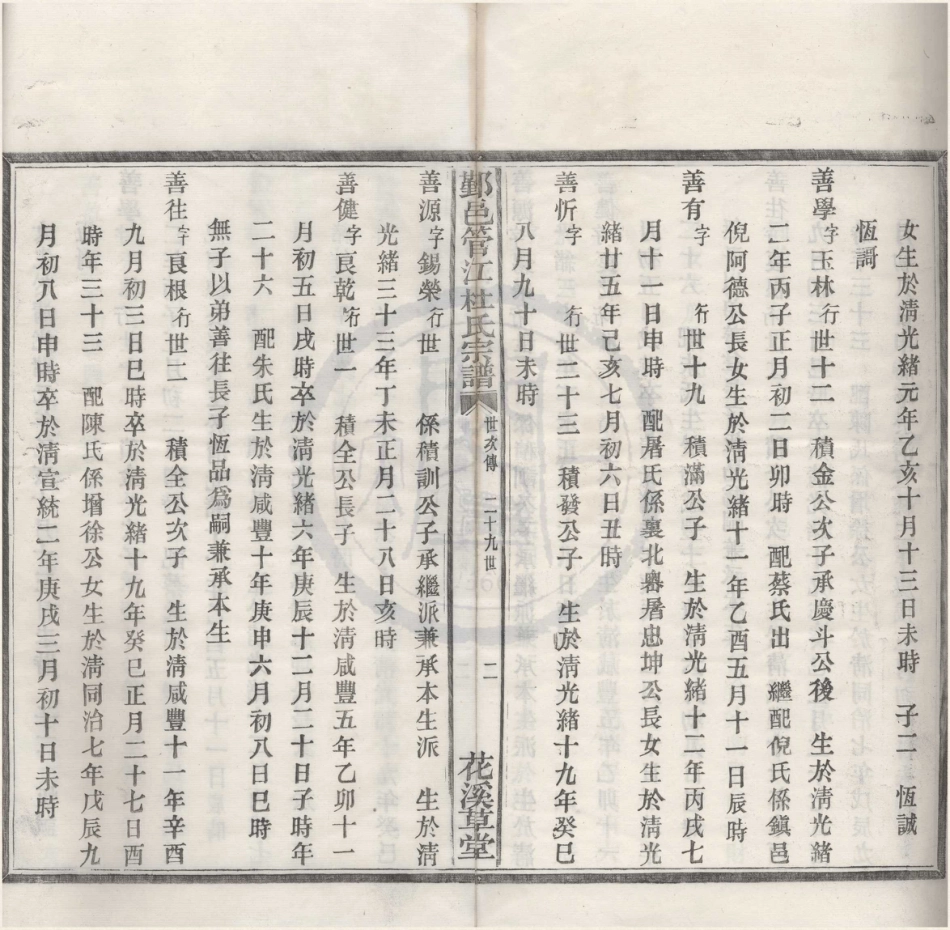 女生於清光緒元年乙亥十月十三日未時　子二　恆誠
恆謌
善學字玉林行世十二　積金公次子承慶斗公後　生於清光緒
二年丙子正月初二日卯時　配蔡氏出　繼配倪氏係鎮邑
倪阿德公長女生於清光緒十一年乙酉五月十一日辰時
善有字　行世十九　積滿公子　生於清光緒十二年丙戌七
月十一日申時　配屠氏係裏北嶴屠忠坤公長女生於清光
緒廿五年己亥七月初六日丑時
善忻字　行世二十三　積發公子　生於清光緒十九年癸巳
八月九十日未時
鄞邑管江杜氏宗譜　世次傳　二十九世　二　花溪草堂
善源字錫榮行世　係積訓公子承繼派兼承本生派　生於清
光緒三十三年丁未正月二十八日亥時
善健字良乾行世一　積全公長子　生於清咸豐五年乙卯十一
月初五日戌時卒於清光緒六年庚辰十二月二十日子時年
二十六　配朱氏生於清咸豐十年庚申六月初八日巳時
無子以弟善往長子恆品為嗣兼承本生
善往字良根行世二　積全公次子　生於清咸豐十一年辛酉
九月初三日巳時卒於清光緒十九年癸巳正月二十七日酉
時年三十三　配陳氏係增徐公女生於清同治七年戊辰九
月初八日申時卒於清宣統二年庚戌三月初十日未時